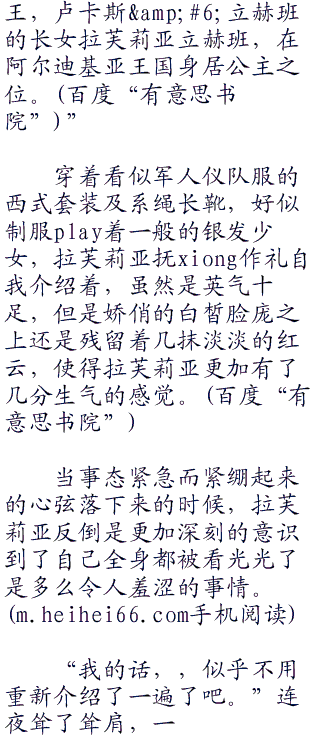 王，卢卡斯&amp;#6;立赫班
的长女拉芙莉亚立赫班，在
阿尔迪基亚王国身居公主之
位。(百度“有意思书
院”)”
穿着看似军人仪队服的
西式套装及系绳长靴，好似
制服play着一般的银发少
女，拉芙莉亚抚xiong作礼自
我介绍着，虽然是英气十
足，但是娇俏的白皙脸庞之
上还是残留着几抹淡淡的红
云，使得拉芙莉亚更加有了
几分生气的感觉。(百度“有
意思书院”)
当事态紧急而紧绷起来
的心弦落下来的时候，拉芙
莉亚反倒是更加深刻的意识
到了自己全身都被看光光了
是多么令人羞涩的事情。
(m.heihei66.com手机阅读)
“我的话，，似乎不用
重新介绍了一遍了吧。”连
夜耸了耸肩，一